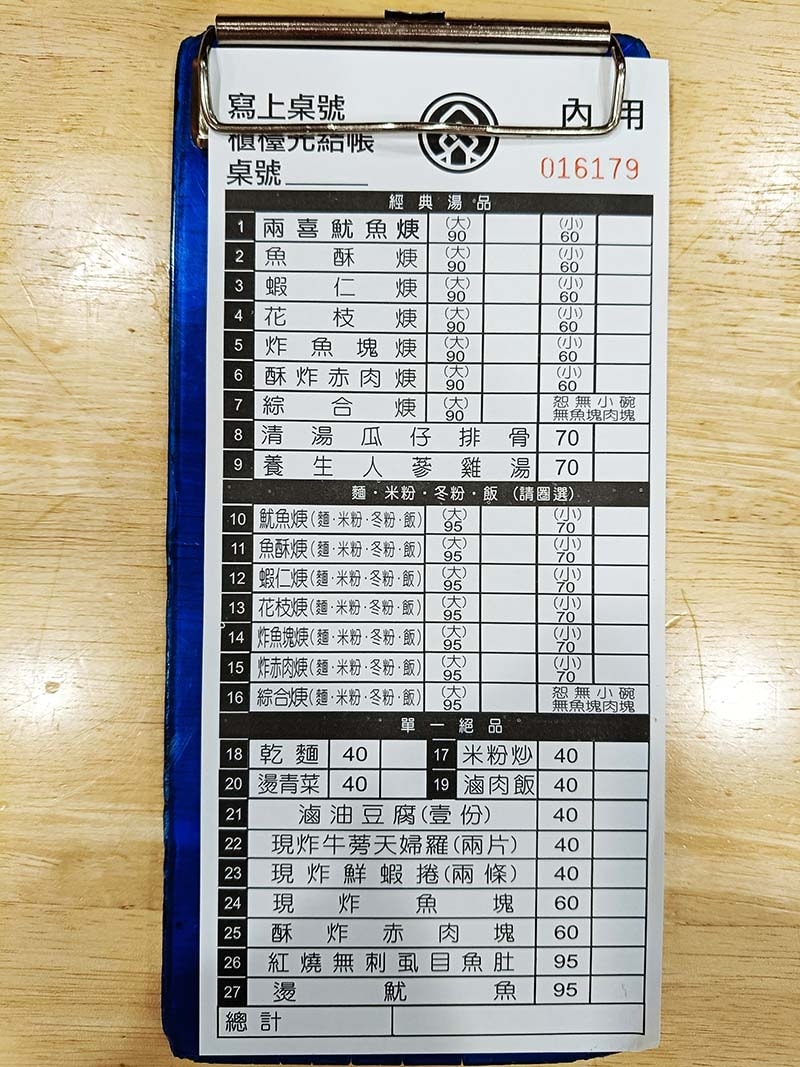 寫上桌號
櫃檯先結帳
桌號
內用
016179
經典湯品
1 兩喜魷魚焿 (大)90 (小)60
2 魚酥焿 (大)90 (小)60
3 蝦仁焿 (大)90 (小)60
4 花枝焿 (大)90 (小)60
5 炸魚塊焿 (大)90 (小)60
6 酥炸赤肉焿 (大)90 (小)60
7 綜合焿 (大)90 恕無小碗 無魚塊肉塊
8 清湯瓜仔排骨 70
9 養生人蔘雞湯 70
麵·米粉·冬粉·飯 (請圈選)
10 魷魚焿(麵·米粉·冬粉·飯) (大)95 (小)70
11 魚酥焿(麵·米粉·冬粉·飯) (大)95 (小)70
12 蝦仁焿(麵·米粉·冬粉·飯) (大)95 (小)70
13 花枝焿(麵·米粉·冬粉·飯) (大)95 (小)70
14 炸魚塊焿(麵·米粉·冬粉·飯) (大)95 (小)70
15 炸赤肉焿(麵·米粉·冬粉·飯) (大)95 (小)70
16 綜合焿(麵·米粉·冬粉·飯) (大)95 恕無小碗 無魚塊肉塊
單一絕品
18 乾麵 40 17 米粉炒 40
20 燙青菜 40 19 滷肉飯 40
21 滷油豆腐(壹份) 40
22 現炸牛蒡天婦羅(兩片) 40
23 現炸鮮蝦捲(兩條) 40
24 現炸魚塊 60
25 酥炸赤肉塊 60
26 紅燒無刺虱目魚肚 95
27 燙魷魚 95
總計